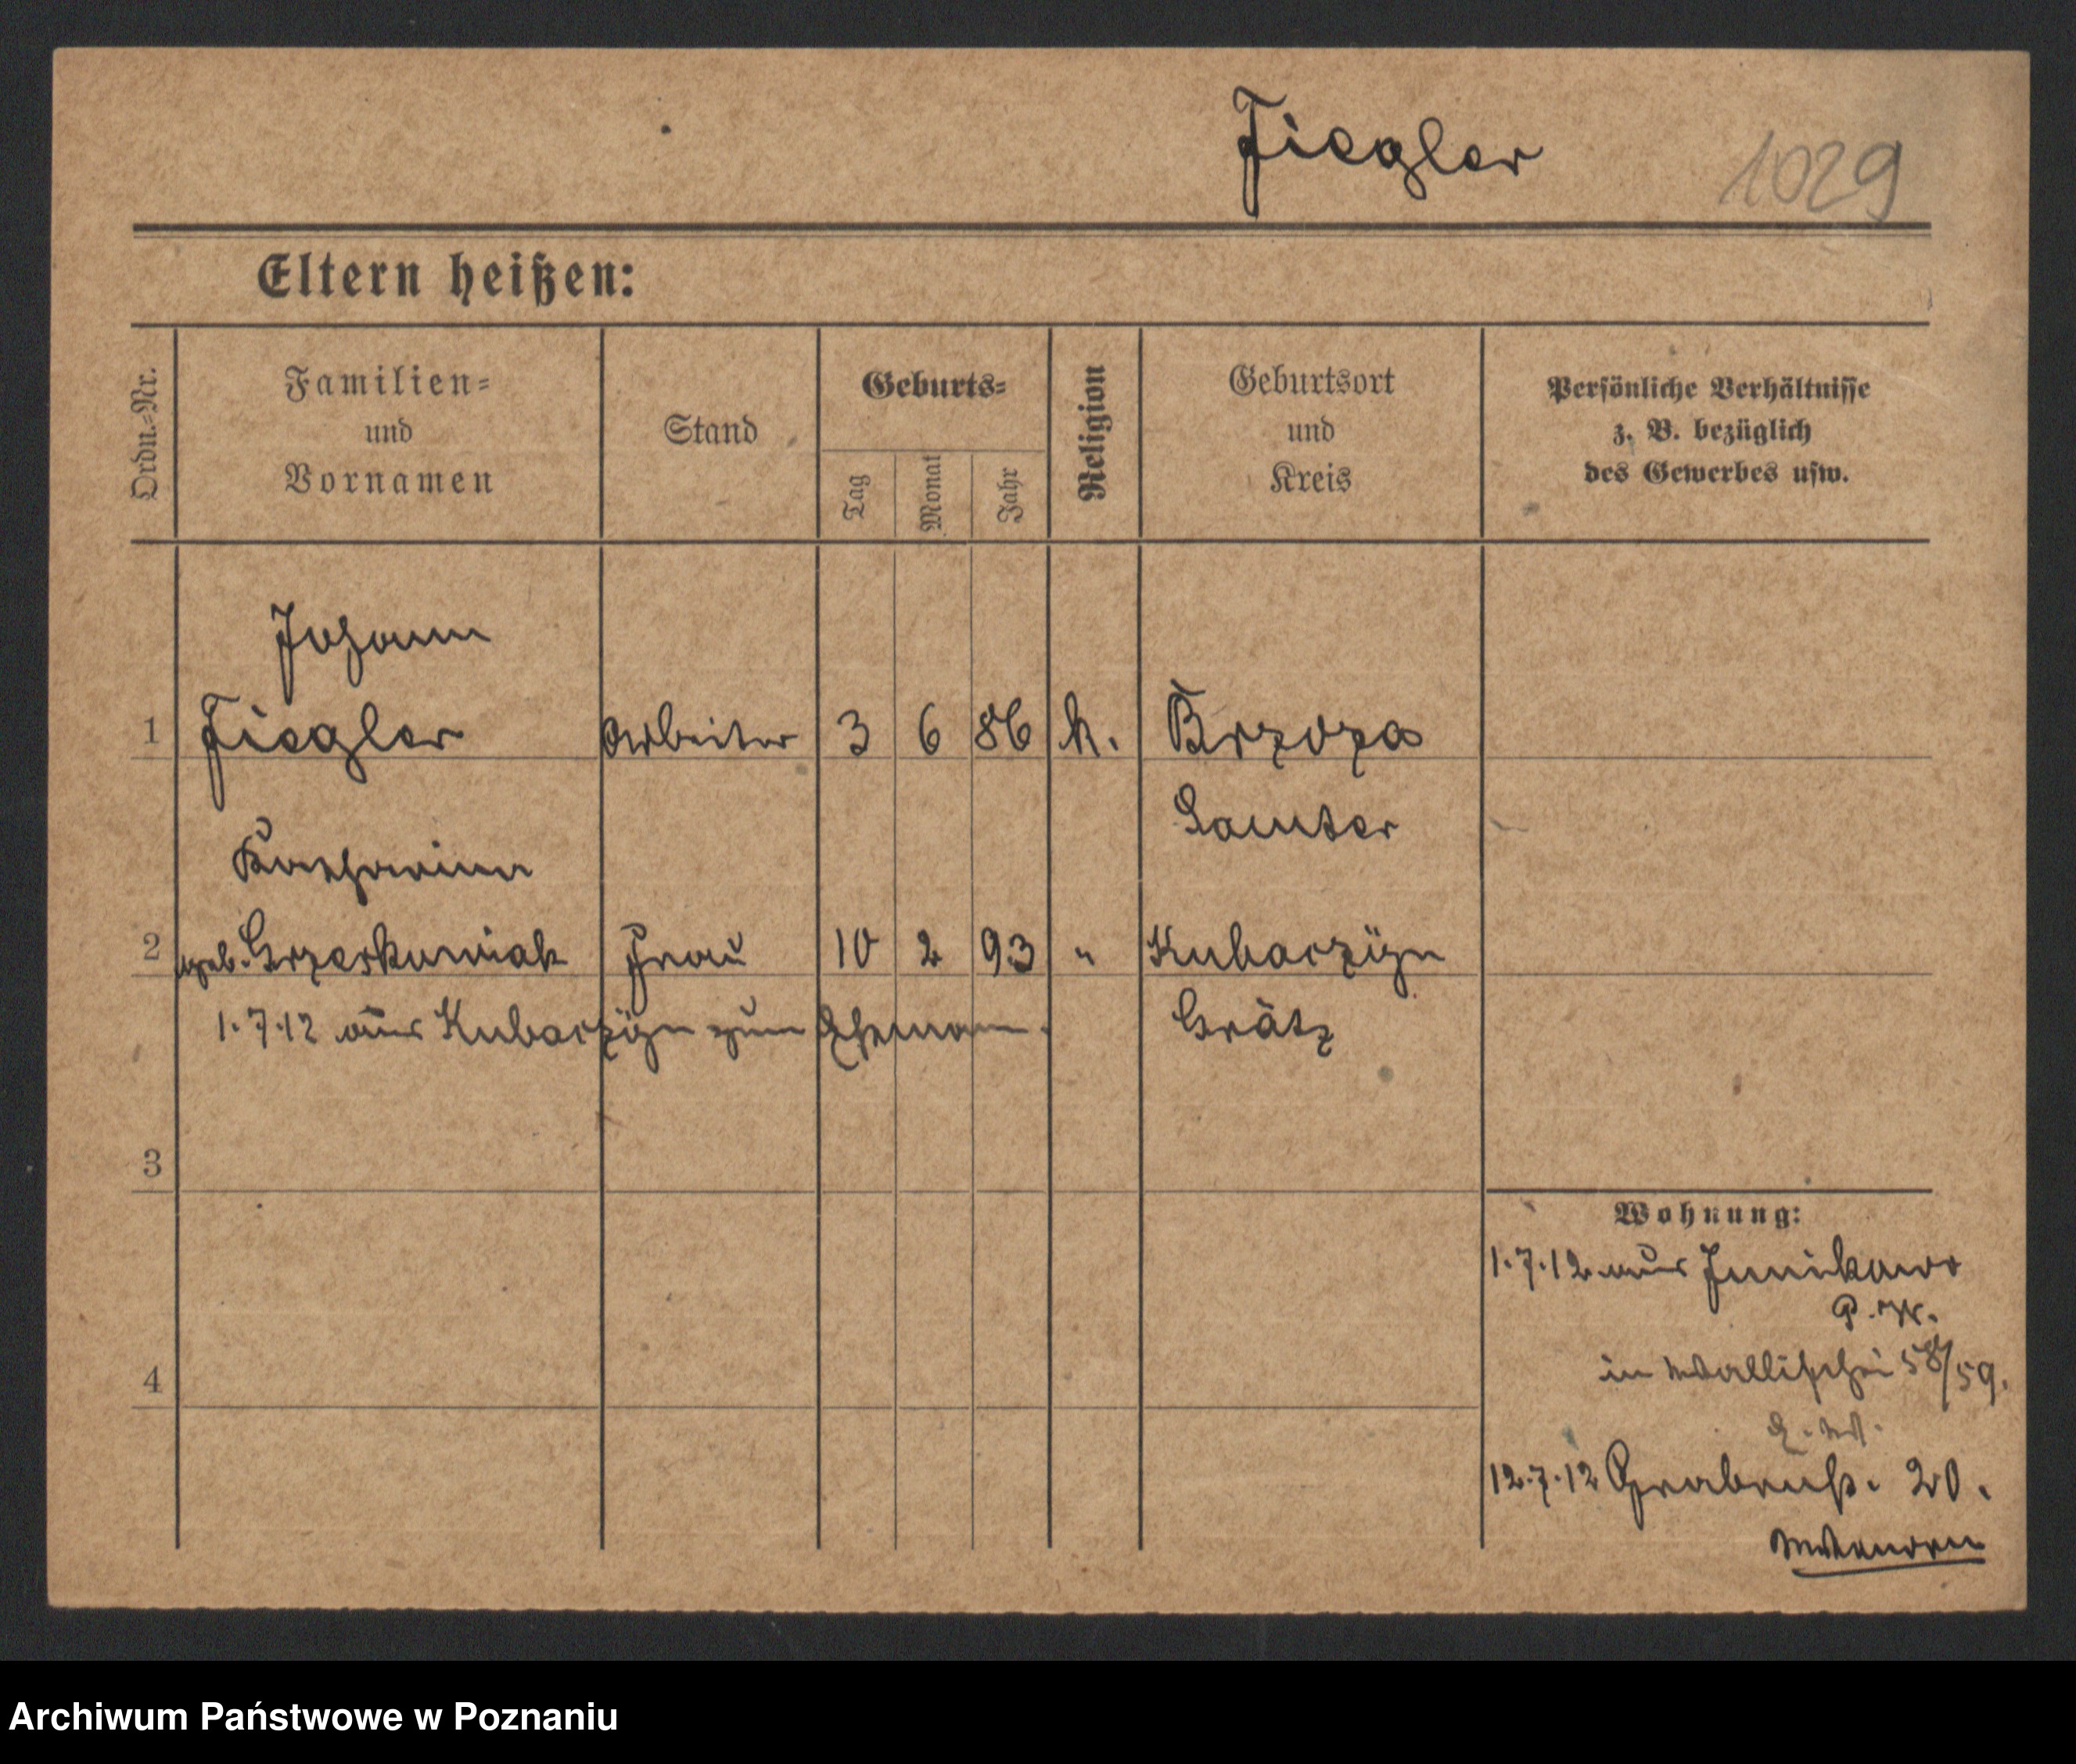 Fiegler 1029
Eltern heißen:
Ordn.-Nr.
Familien-
und
Vornamen
Stand
Geburts-
Tag
Monat
Jahr
Religion
Geburtsort
und
Kreis
Persönliche Verhältnisse
z. B. bezüglich
des Gewerbes usw.
Johann
1 Fiegler Arbeiter 3 6 86 k. Brzoza
Samter
Katharina
2 geb. Grzeskowiak Frau 10 2 93 " Kubaczyn
1.7.12 aus Kubaczyn zum Ehemann. Grätz
3
Wohnung:
1.7.12 aus Junikowo
P. W.
in Wallischei 58/59.
4
12.7.12 Grabenstr. 20.
Archiwum Państwowe w Poznaniu